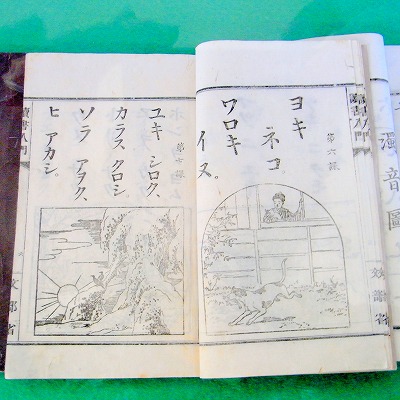 讀書入門
第六課
ヨキ
ネコ。
ワロキ
イヌ。
文部省
第七課
ユキ シロク、
カラス クロシ。
ソラ アヲク、
ヒ アカシ。
讀書入門
文部省
濁音圖